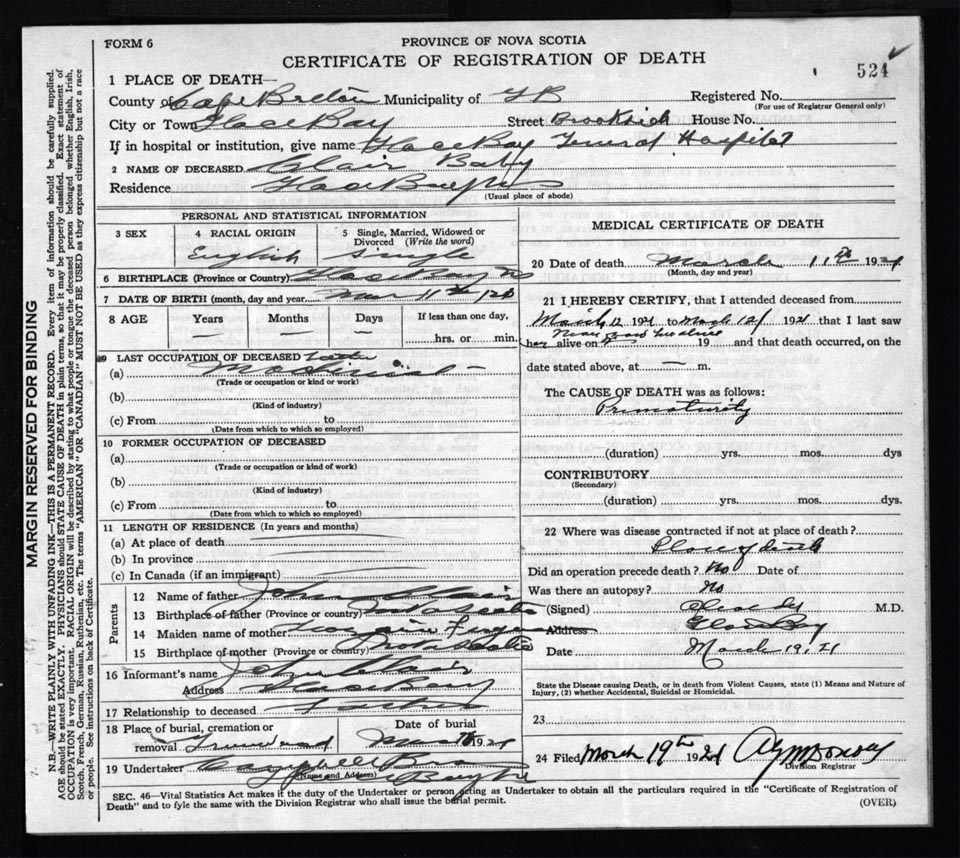 FORM 6
PROVINCE OF NOVA SCOTIA
CERTIFICATE OF REGISTRATION OF DEATH
524
1 PLACE OF DEATH—
County of Cape Breton Municipality of G B Registered No.
(For use of Registrar General only)
City or Town Glace Bay Street Brookside House No.
If in hospital or institution, give name Glace Bay General Hospital
2 NAME OF DECEASED Clair Baby
Residence Glace Bay
(Usual place of abode)
PERSONAL AND STATISTICAL INFORMATION
3 SEX
4 RACIAL ORIGIN
English
5 Single, Married, Widowed or Divorced (Write the word)
Single
6 BIRTHPLACE (Province or Country) Glace Bay NS
7 DATE OF BIRTH (month, day and year) Mar 11th
8 AGE Years Months Days If less than one day,
hrs. or min.
9 LAST OCCUPATION OF DECEASED
(a)
(Trade or occupation or kind or work)
(b)
(Kind of industry)
(c) From to
(Date from which to which so employed)
10 FORMER OCCUPATION OF DECEASED
(a)
(Trade or occupation or kind of work)
(b)
(Kind of industry)
(c) From to
(Date from which to which so employed)
11 LENGTH OF RESIDENCE (In years and months)
(a) At place of death
(b) In province
(c) In Canada (if an immigrant)
Parents
12 Name of father John Clair
13 Birthplace of father (Province or country)
14 Maiden name of mother
15 Birthplace of mother (Province or country)
16 Informant's name John Clair
Address Glace Bay
17 Relationship to deceased Father
18 Place of burial, cremation or removal
Date of burial
1921
19 Undertaker Campbell
(Name and Address)
MEDICAL CERTIFICATE OF DEATH
20 Date of death March 11th 1921
(Month, day and year)
21 I HEREBY CERTIFY, that I attended deceased from
March 12 1921 to March 12 1921 that I last saw
her alive on 19 and that death occurred, on the
date stated above, at m.
The CAUSE OF DEATH was as follows:
Prematurity
(duration) yrs. mos. dys
CONTRIBUTORY
(Secondary)
(duration) yrs. mos. dys.
22 Where was disease contracted if not at place of death?
Place of death
Did an operation precede death? No Date of
Was there an autopsy? No
(Signed) M.D.
Address Glace Bay
Date March 19, 21
State the Disease causing Death, or in death from Violent Causes, state (1) Means and Nature of
Injury, (2) whether Accidental, Suicidal or Homicidal.
23
24 Filed March 19th 1921
Division Registrar
SEC. 46—Vital Statistics Act makes it the duty of the Undertaker or person acting as Undertaker to obtain all the particulars required in the "Certificate of Registration of
Death" and to fyle the same with the Division Registrar who shall issue the burial permit.
(OVER)
MARGIN RESERVED FOR BINDING
N.B.—WRITE PLAINLY WITH UNFADING INK—THIS IS A PERMANENT RECORD. Every item of information should be carefully supplied.
AGE should be stated EXACTLY. PHYSICIANS should STATE CAUSE OF DEATH in plain terms, so that it may be properly classified. Exact statement of
OCCUPATION is very important. RACIAL ORIGIN will be described by stating to what people or tongue the deceased person belonged whether English, Irish,
Scotch, French, German, Russian, Ruthenian, etc. The terms "AMERICAN" OR "CANADIAN" MUST NOT BE USED as they express citizenship but not a race
or people. See instructions on back of Certificate.